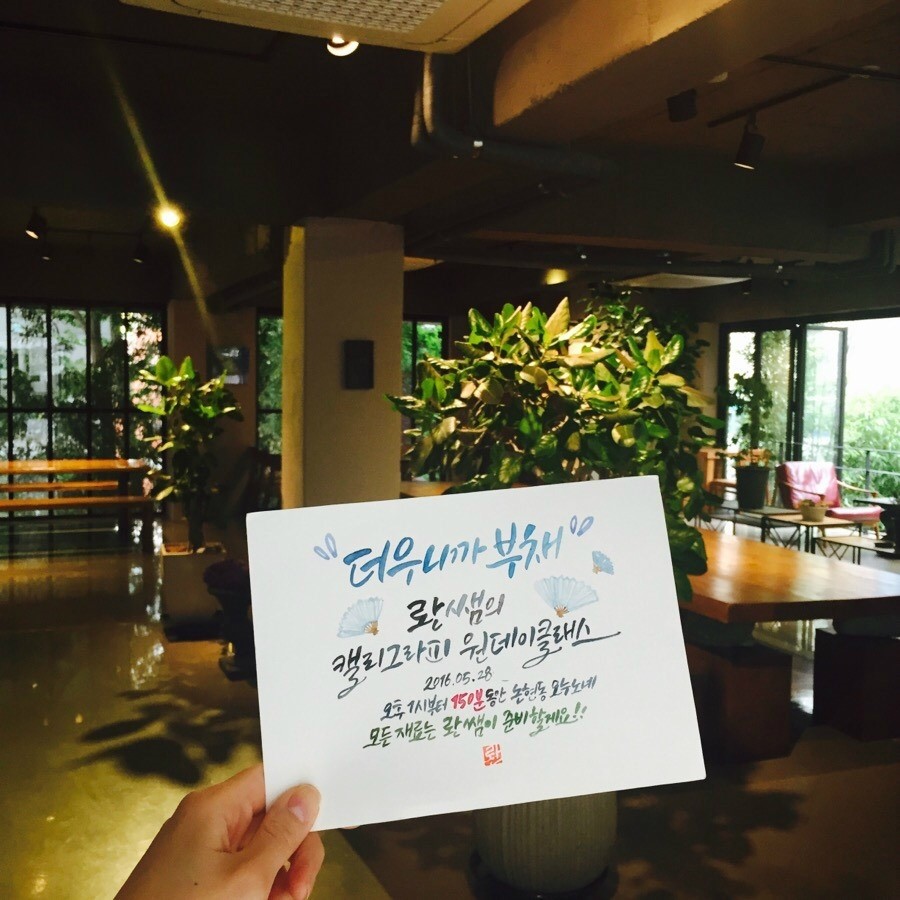 더우니까 부채
롼쌤의
캘리그라피 원데이클래스
2016.05.28
오후 1시부터 150분동안 논현동 오누노네
모든 재료는 롼쌤이 준비할게요!!
롼